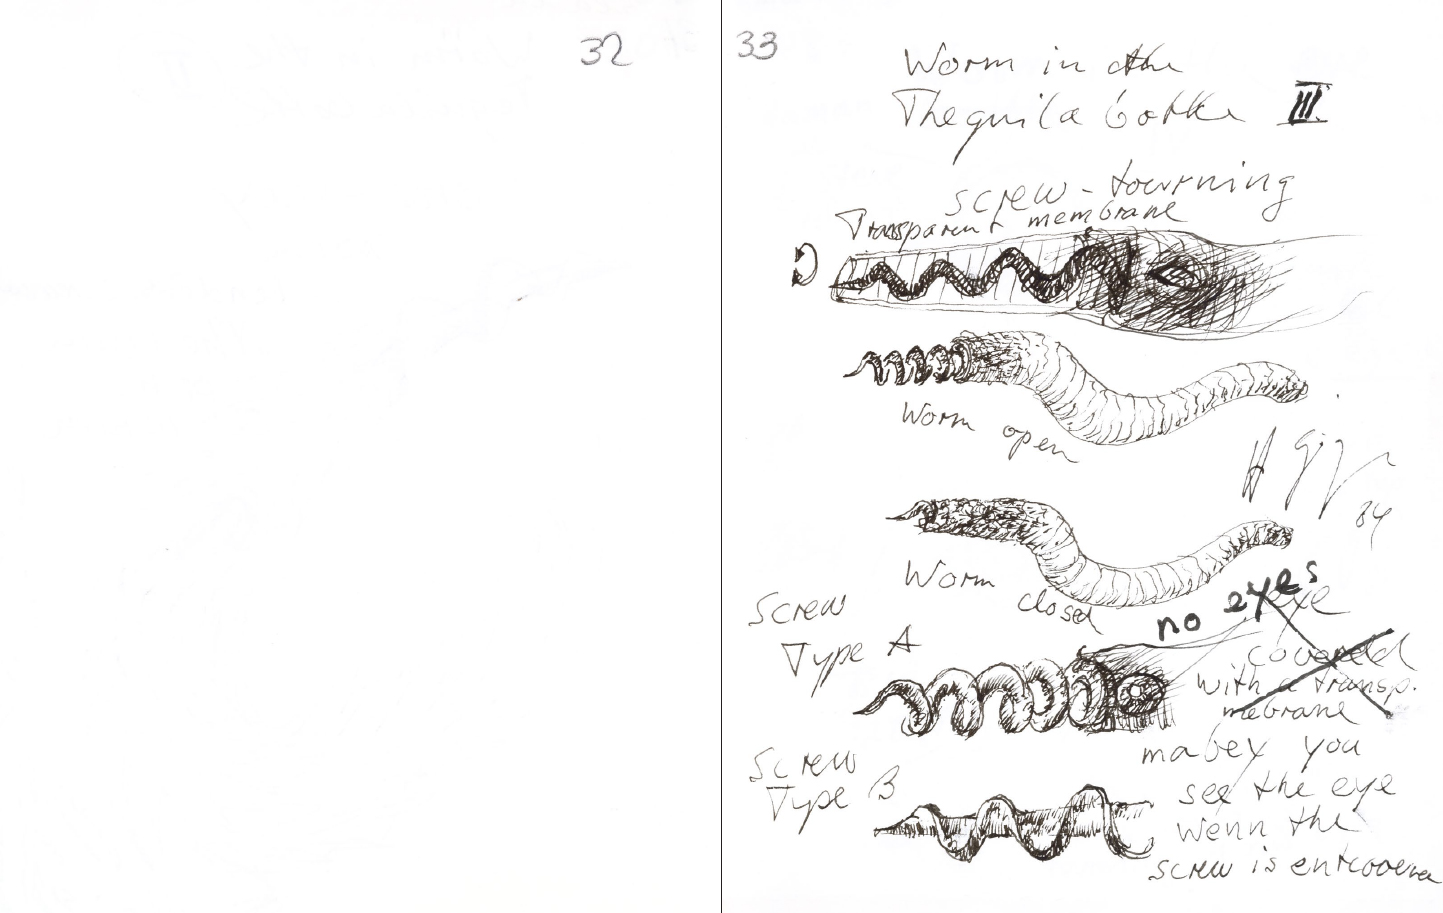 32
33
Worm in the
Thequila bottle III.
screw-tourning
Transparent membrane
Worm open
H Giger
84
Worm closed
no eyes
eye
covered
with a transp.
mebrane
Screw
Type A
mabey you
see the eye
wenn the
screw is
Screw
Type B